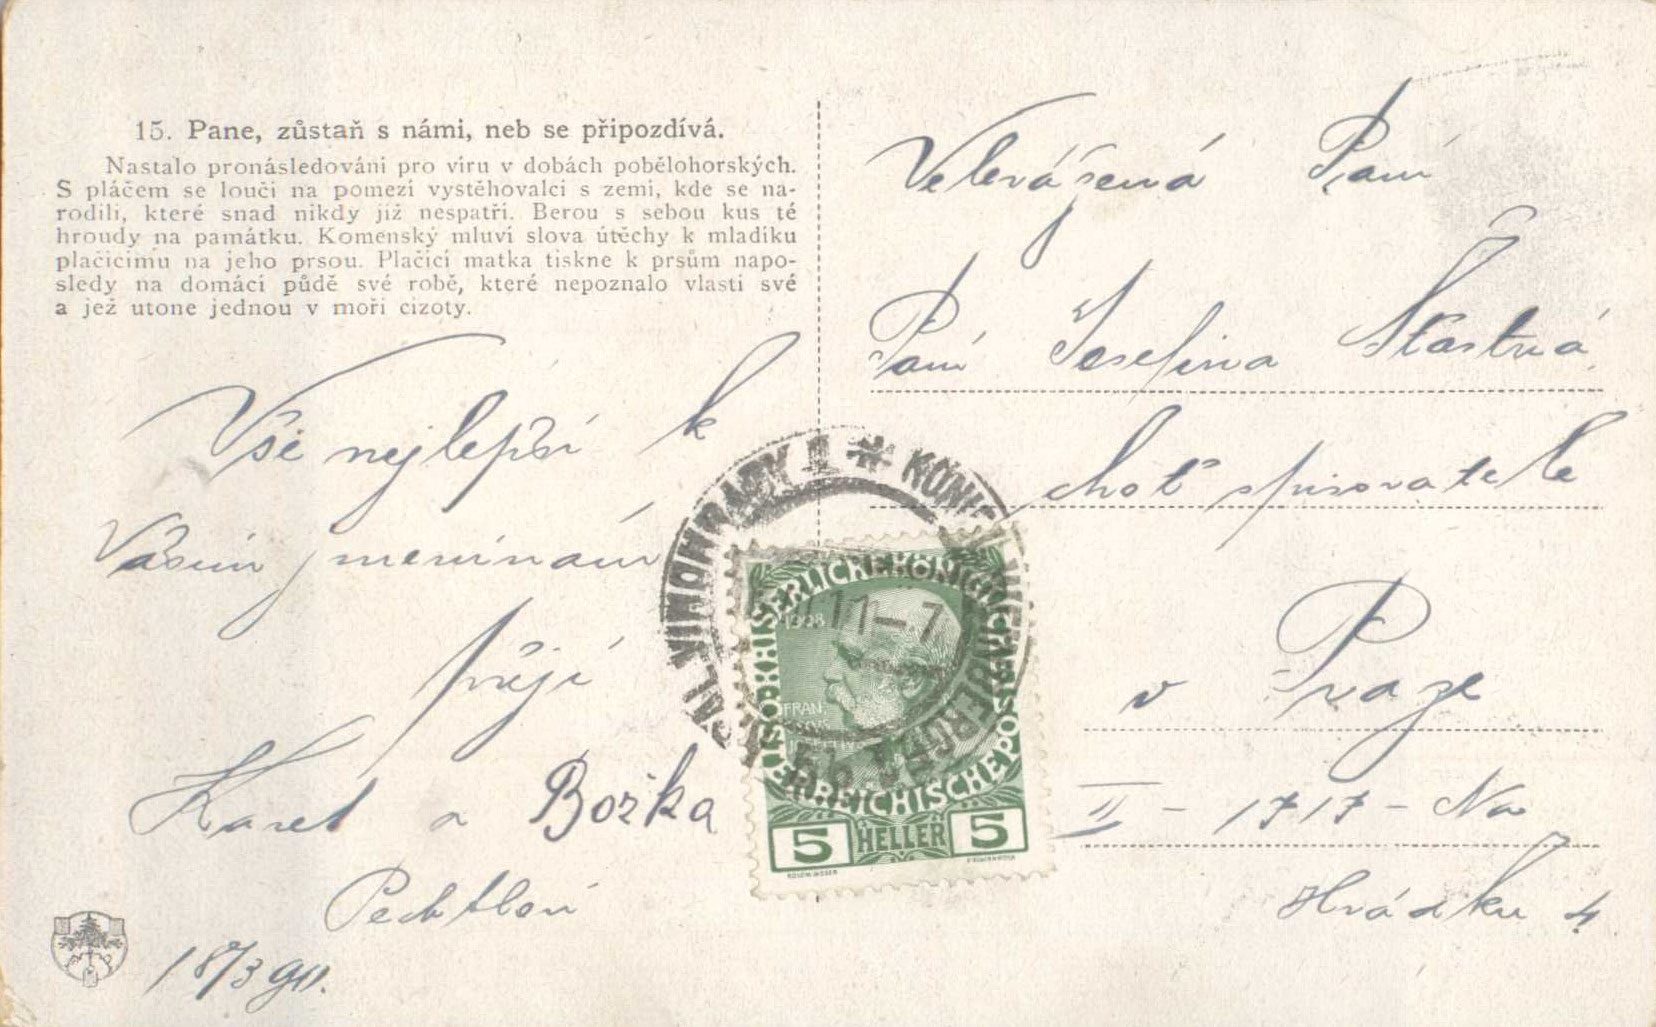 15. Pane, zůstaň s námi, neb se připozdívá.
Nastalo pronásledování pro víru v dobách pobělohorských.
S pláčem se loučí na pomezí vystěhovalci s zemí, kde se na-
rodili, které snad nikdy již nespatří. Berou s sebou kus té
hroudy na památku. Komenský mluví slova útěchy k mladíku
plačícímu na jeho prsou. Plačící matka tiskne k prsům napo-
sledy na domácí půdě své robě, které nepoznalo vlasti své
a jež utone jednou v moři cizoty.
Vše nejlepší k
Vašim jmeninám
přejí
Karel a Božka
Pechtlovi
18/3 911.
Velevážená Paní
Paní Josefina Šťastná
choť spisovatele
v Praze
II - 1717 - Na
Hrádku 4.
KRÁL. VINOHRADY 1 * KÖNIGL. WEINBERGE 1
11-7
KAISERLICHEKÖNIGLICHE
ÖSTERREICHISCHEPOST
1908
FRANZ
5 HELLER 5